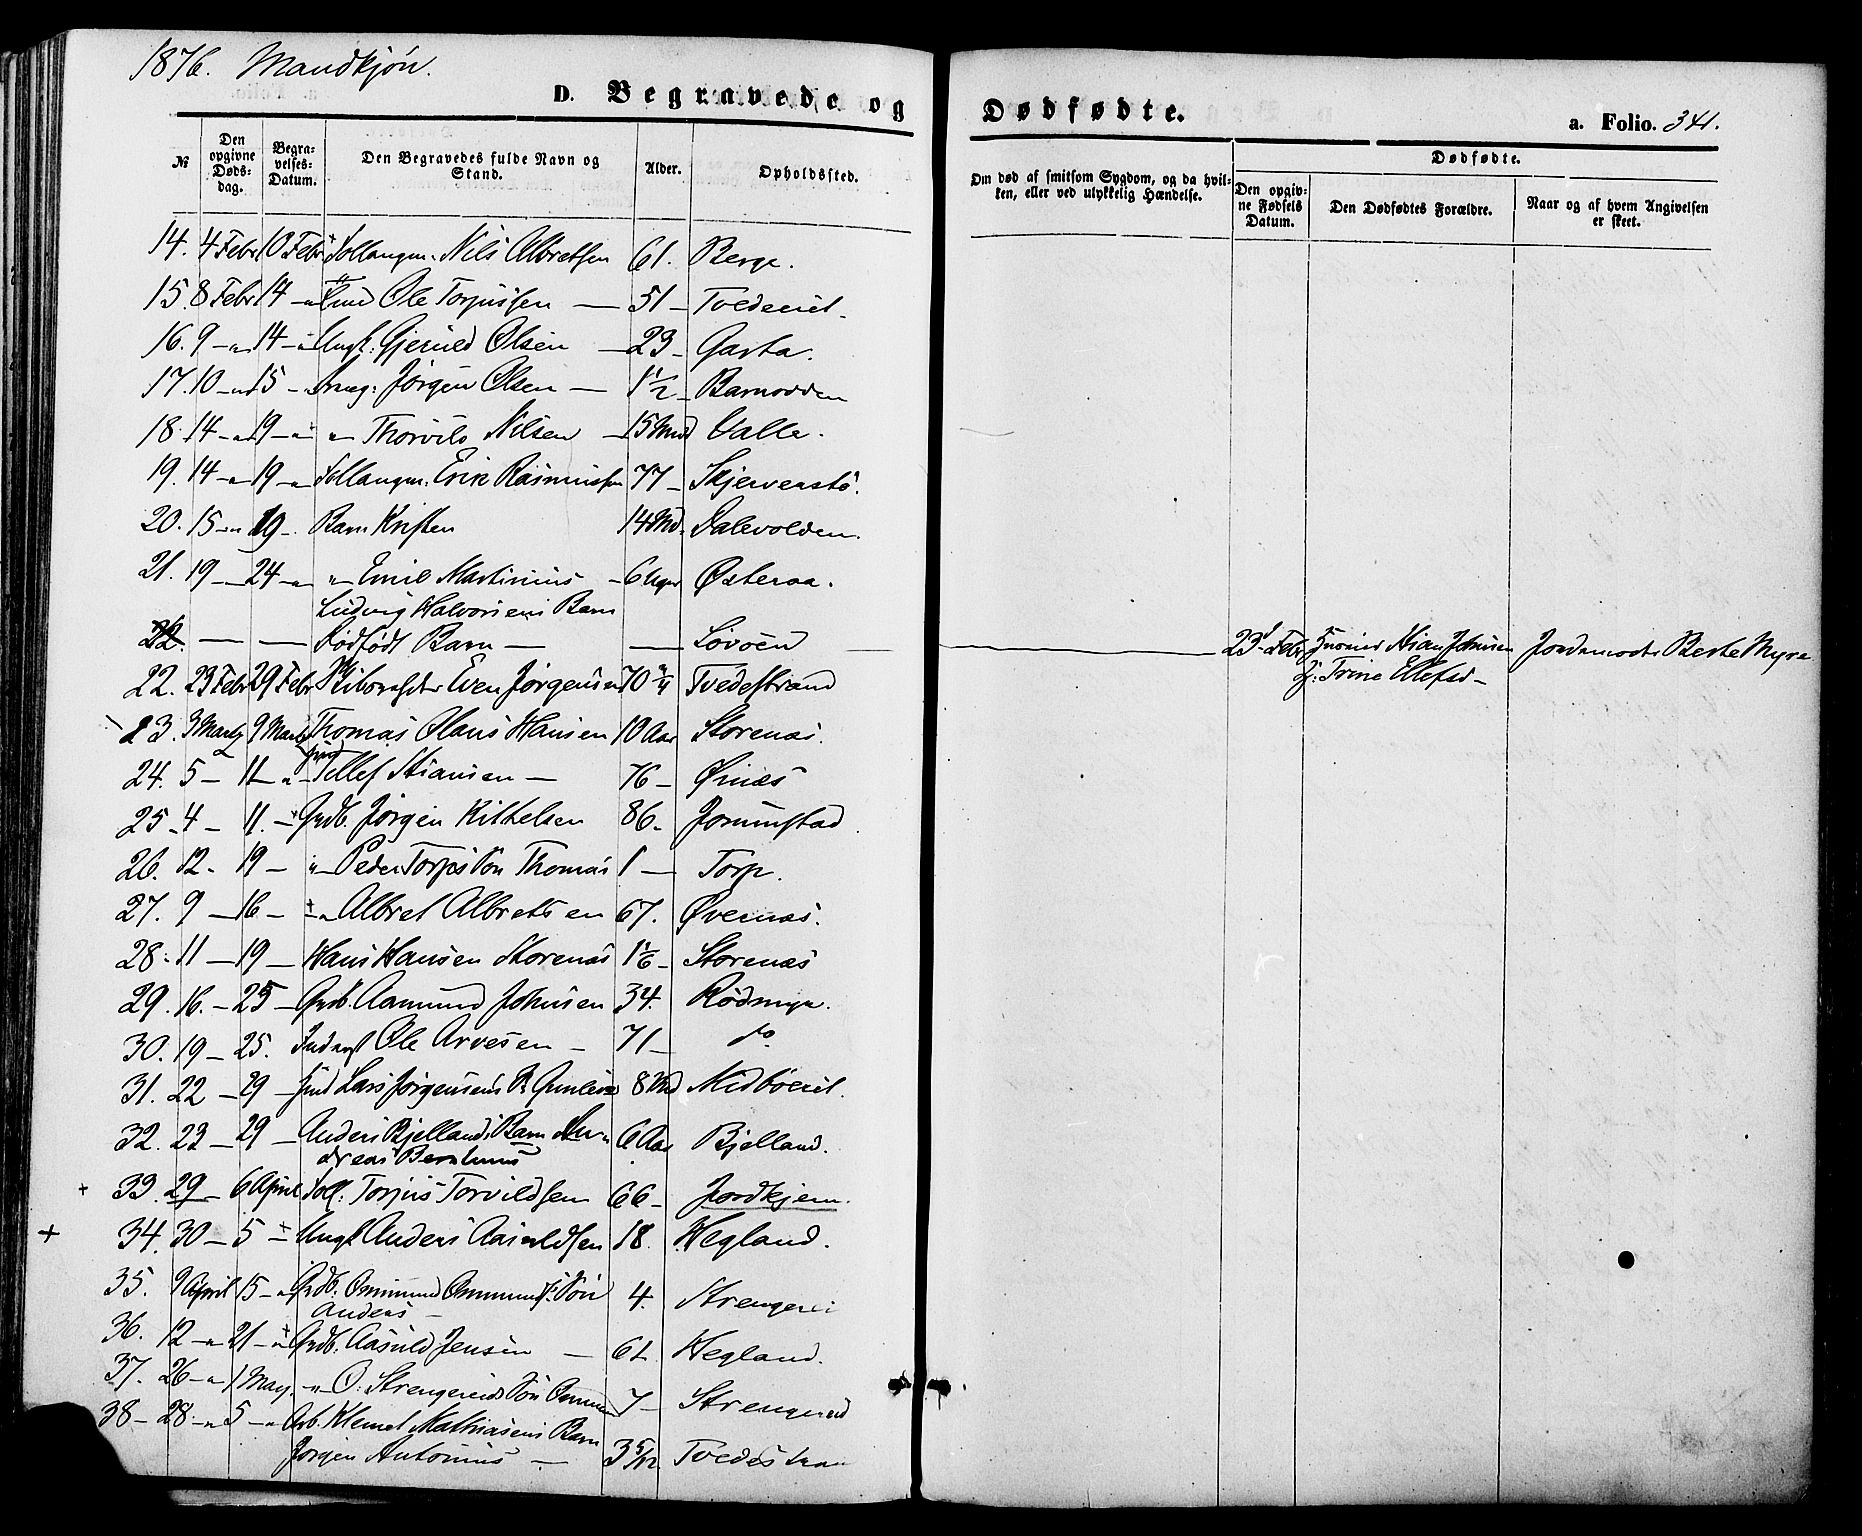 1876. Mandkjøn.
D. Begravede og Dødfødte.
a. Folio. 341.
№
Den opgivne Dødsdag.
Begravelses-Datum.
Den Begravedes fulde Navn og Stand.
Alder.
Opholdssted.
Om død af smitsom Sygdom, og da hvilken, eller ved ulykkelig Hændelse.
Dødfødte.
Den opgivne Fødsels Datum.
Den Dødfødtes Forældre.
Naar og af hvem Angivelsen er skeet.
14. 4 Febr 10 Febr Nils Albretsen 61. Berge.
15. 8 Febr 14 - Ole Torjussen — 51 - Tvedeeiet.
16. 9 - 14 - Ungk: Gjeruld Olsen — 23 - Garta.
17. 10 - 15 - Jørgen Olsen — 1 1/2 - Barnodden
18. 14 - 19 - " Thorvils Nilsen — 15 Mnd Valle.
19. 14 - 19 - Erik Rasmussen 77 - Skjervenstø.
20. 15 - 19 - Barn Kristen 14 Md. Dalevolden.
21. 19 - 24 - " Emil Martinius - 6 Uger Østeraa.
Ludvig Halvorsens Barn
22 — — Dødfødt Barn — — Lovøen 23 Febr Johnsen Jordemoder Berte Myra
Trine Ellefsd -
22. 23 Febr 29 Febr Even Jørgensen 70 3/4 Tvedestrand
23. 3 Marts 9 Marts Thomas Olaus Hansen 10 Aar Storenæs.
24. 5 - 11 - Tellef Stiansen — 76 - Øinæs
25. 4 - 11. - Grdb. Jørgen Kittelsen 86 - Jomunstad
26. 12 - 19 - " Peder Torps Søn Thomas 1 — Torp.
27. 9 - 16 - " Albret Albretsen 67. Øvernæs.
28. 11 - 19 - Hans Hansen Storenæs 1 1/6 - Storenæs
29. 16. - 25 - Grdb. Aamund Johnsen 34. Rødmyr.
30. 19 - 25. Ind. Ole Arvesen - 71 - do
31. 22 - 29 - Lars Jørgensens B. Gunleik 8 Md Midbøeiet.
32. 23 - 29 - Anders Bjellands Barn Andreas Bernhinus 6 Aar Bjelland.
33. 29 - 6 April Torjus Torvildsen 66 - Jordkjenn.
34. 30 - 5 - Ungk Anders Aasuldsen 18. Hegland.
35. 9 April 15 - Grdb. Ommund Ommunds. Søn 4. Strengerei
Anders -
36. 12 - 21 - Grdb. Aasuld Jensen — 61. Hegland.
37. 26 - 1 May. - " O. Strengereids Søn Ommun 7 - Strengereid
38 - 28 - 5 - Klemet Mathiasens Barn
Jørgen Antonius — 3 5/12 Tvedestran